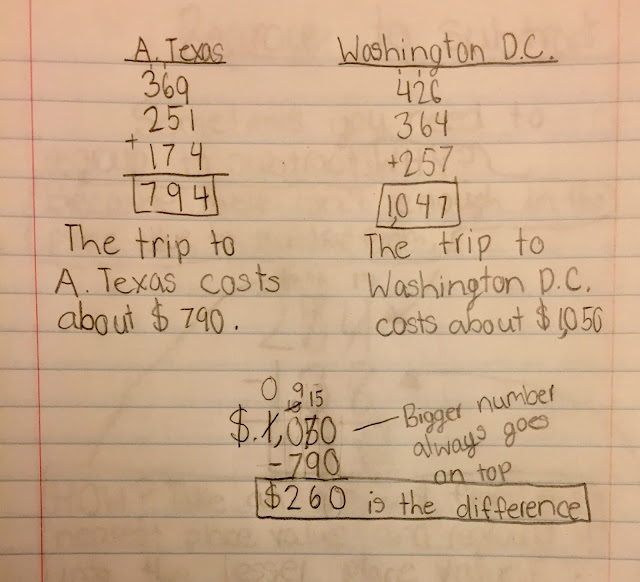 A. Texas
369
251
+174
794
The trip to
A. Texas costs
about $790.
Washington D.C.
426
364
+257
1,047
The trip to
Washington D.C.
costs about $1,050
0 9 15
10
$.1,050
-790
$260 is the difference
Bigger number
always goes
on top